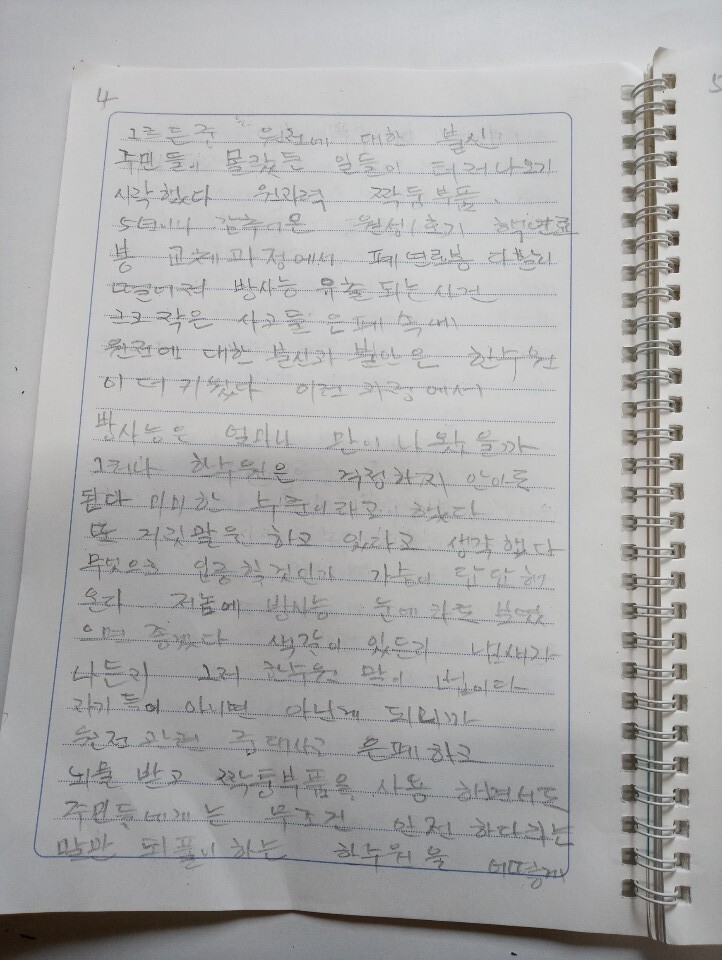 4
그르든중 원전에 대한 불신
주민들이 몰랐든 일들이 터러나오기
시작했다 원자력 짝퉁부품.
5년이나 감추어온 월성1호기 핵연료
봉 교체과정에서 폐연료봉 다발이
떨어져 방사능 유출되는 사건
크고 작은 사고들 은폐 속에
원전에 대한 불신과 불안은 한수원
이 더 키웠다 이런 과정에서
방사능은 얼마나 만이 나왔을까
그러나 한수원은 걱정하지 안아도
된다 미미한 수준이라고 했다
또 거짓말을 하고 있다고 생각했다
무엇으로 인증할것인가 가슴이 답답해
온다 저놈에 방사능 눈에라도 보였
으면 좋겠다 색깔이 있든리 냄새가
나든리 그러 한수원 말이 법이다
라기들이 아니면 아닌게 되니까
원전관련 중대사고 은폐하고
뇌물 받고 짝퉁부품을 사용 하면서도
주민들에게는 무조건 안전 하다라는
말만 되풀이하는 한수원을 어떻게
5